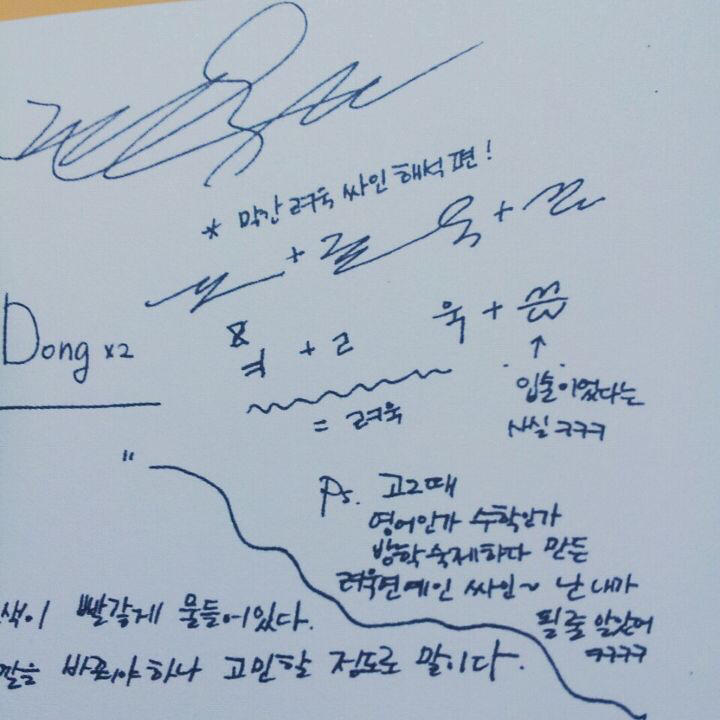 * 막간 려욱 싸인 해석 편!
+ +
Dong x2
ㅕ + ㄹ 욱 +
↑
입술이었다는
사실 ㅋㅋㅋ
= 려욱
"
Ps. 고2때
영어인가 수학인가
방학숙제하다 만든
려욱연예인 싸인~ 난 내가
될 줄 알았어
ㅋㅋㅋㅋ
색이 빨갛게 물들어있다.
깔을 바꿔야 하나 고민할 정도로 말이다.